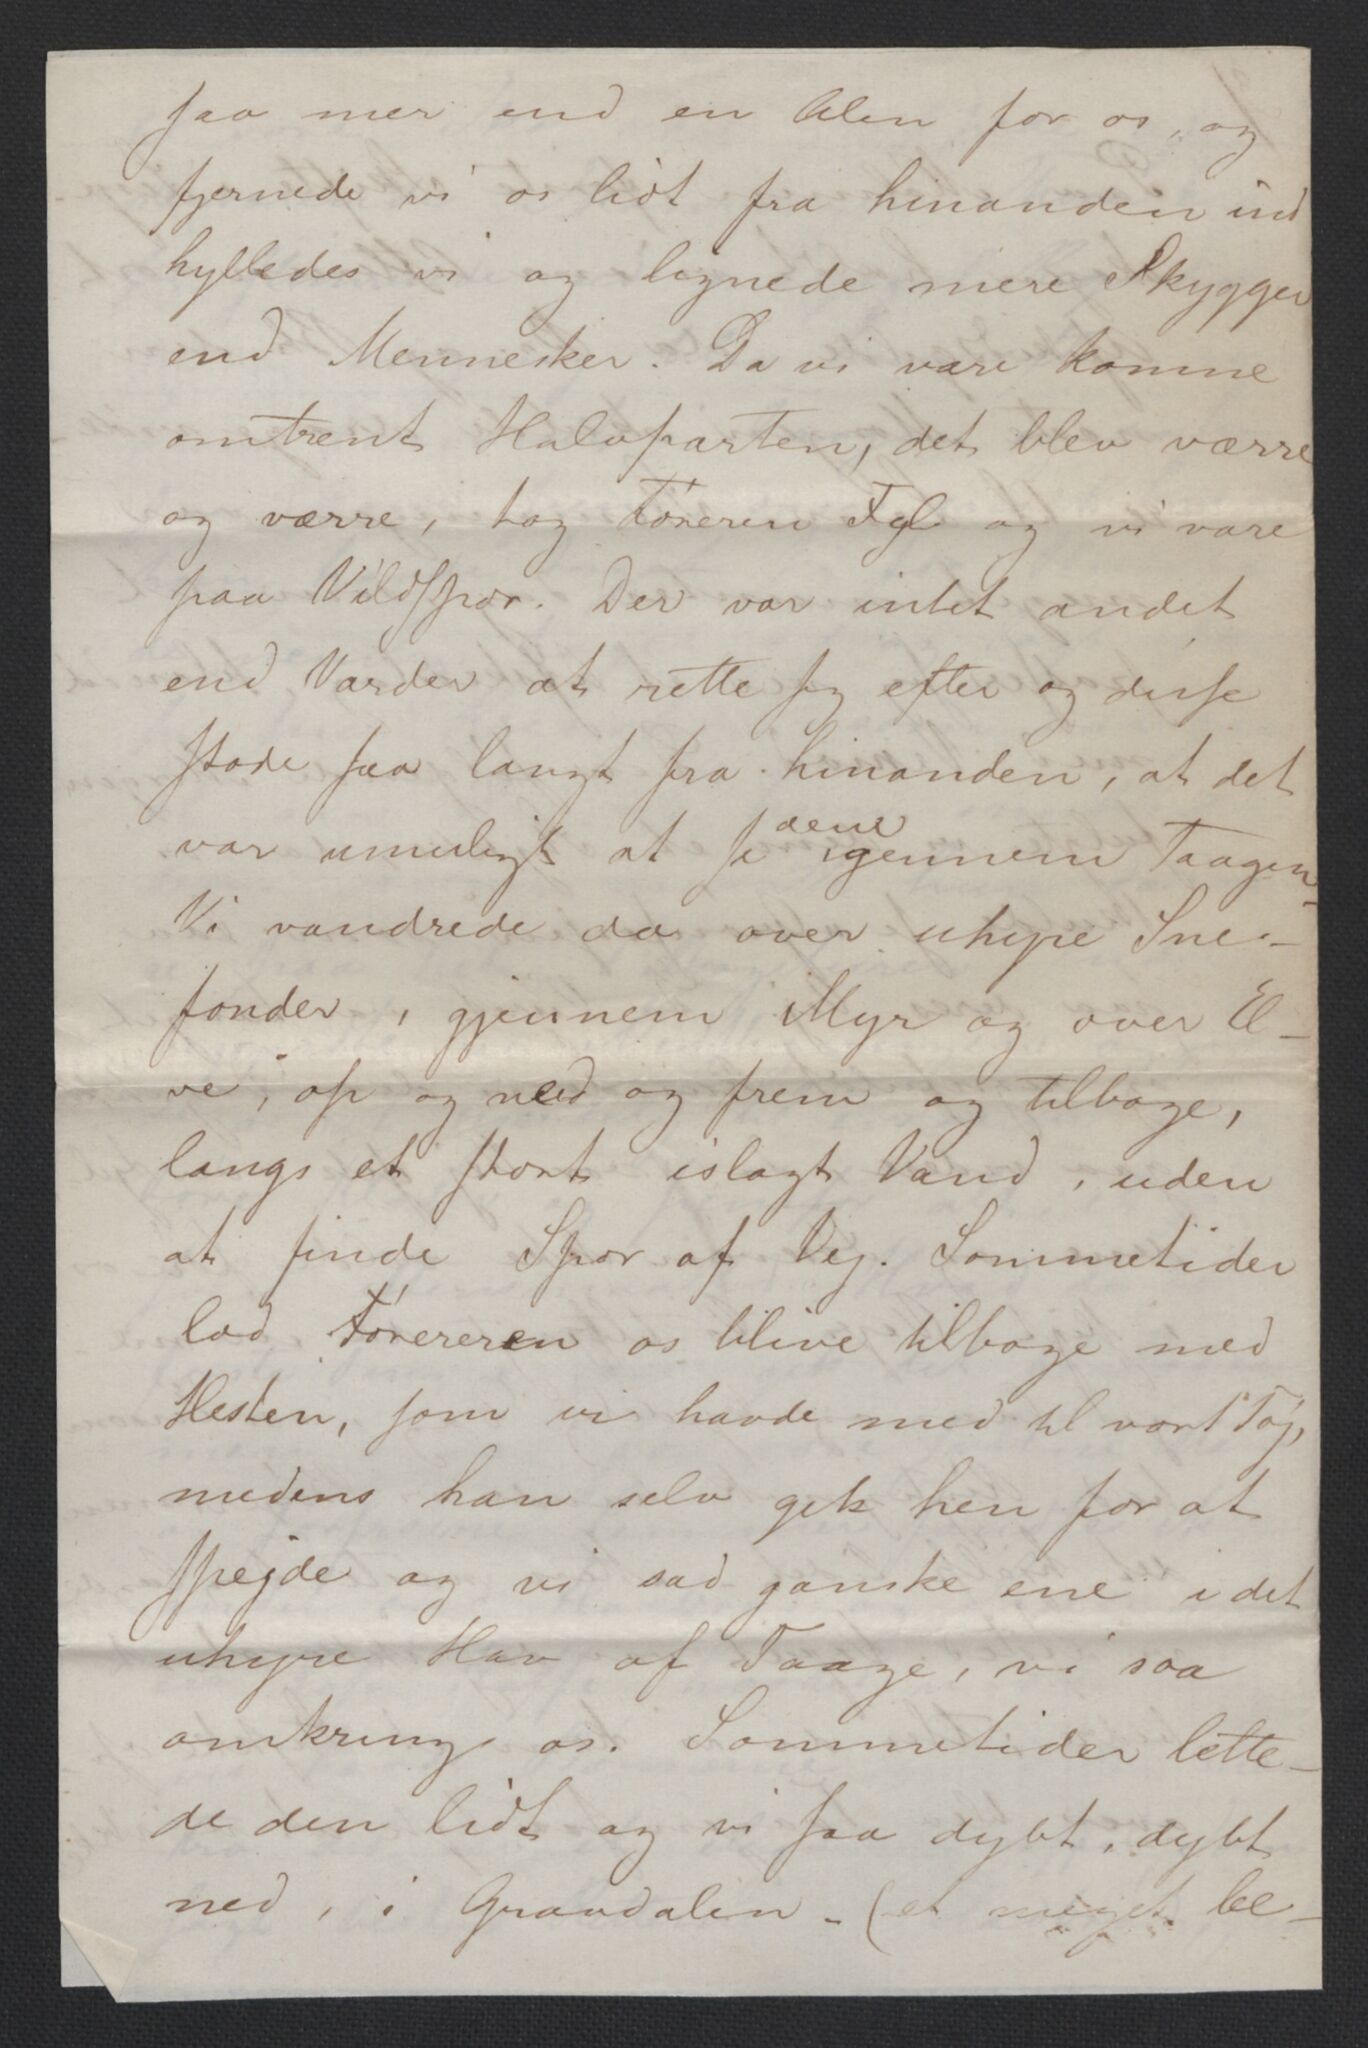 saa mer end en Alen for os, og
fjernede vi os lidt fra hinanden ind
hylledes vi og lignede mere Skygger
end Mennesker. Da vi vare komne
omtrent Halvparten, det blev værre
og værre, tog Föreren Fejl og vi vare
paa Vildspor. Der var intet andet
end Varder at rette sig efter og disse
stode saa langt fra hinanden, at det
var umuligt at se dem igennem Taagen.
Vi vandrede da over uhyre Sne-
fonder, gjennem Myr og over El-
ve, op og ned og frem og tilbage,
langs et stort islagt Vand, uden
at finde Spor af Vej. Sommetider
lod Föreren os blive tilbage med
Hesten, som vi havde med til vort Töj,
medens han selv gik hen for at
spejde og vi sad ganske ene i det
uhyre Hav af Taage, vi saa
omkring os. Sommetider lette-
de den lidt og vi saa dybt, dybt
ned, i Gravdalen - (et meget be-